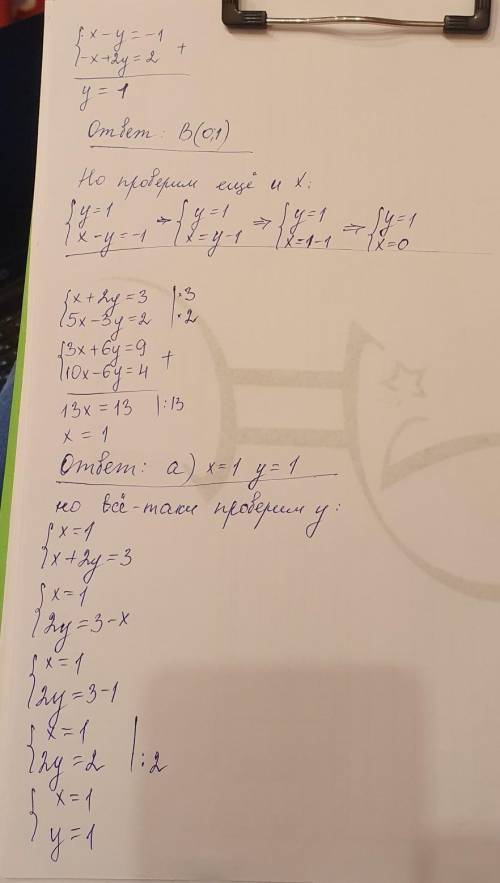 {x-y=-1
{-x+2y=2 +
y=1
Ответ: B(0,1)
Но проверим ещё и x:
{y=1 => {y=1 => {y=1 => {y=1
{x-y=-1 {x=y-1 {x=1-1 {x=0
{x+2y=3 |·3
{5x-3y=2 |·2
{3x+6y=9 +
{10x-6y=4
13x=13 |:13
x=1
Ответ: а) x=1 y=1
но всё-таки проверим y:
{x=1
{x+2y=3
{x=1
{2y=3-x
{x=1
{2y=3-1
{x=1
{2y=2 |:2
{x=1
{y=1